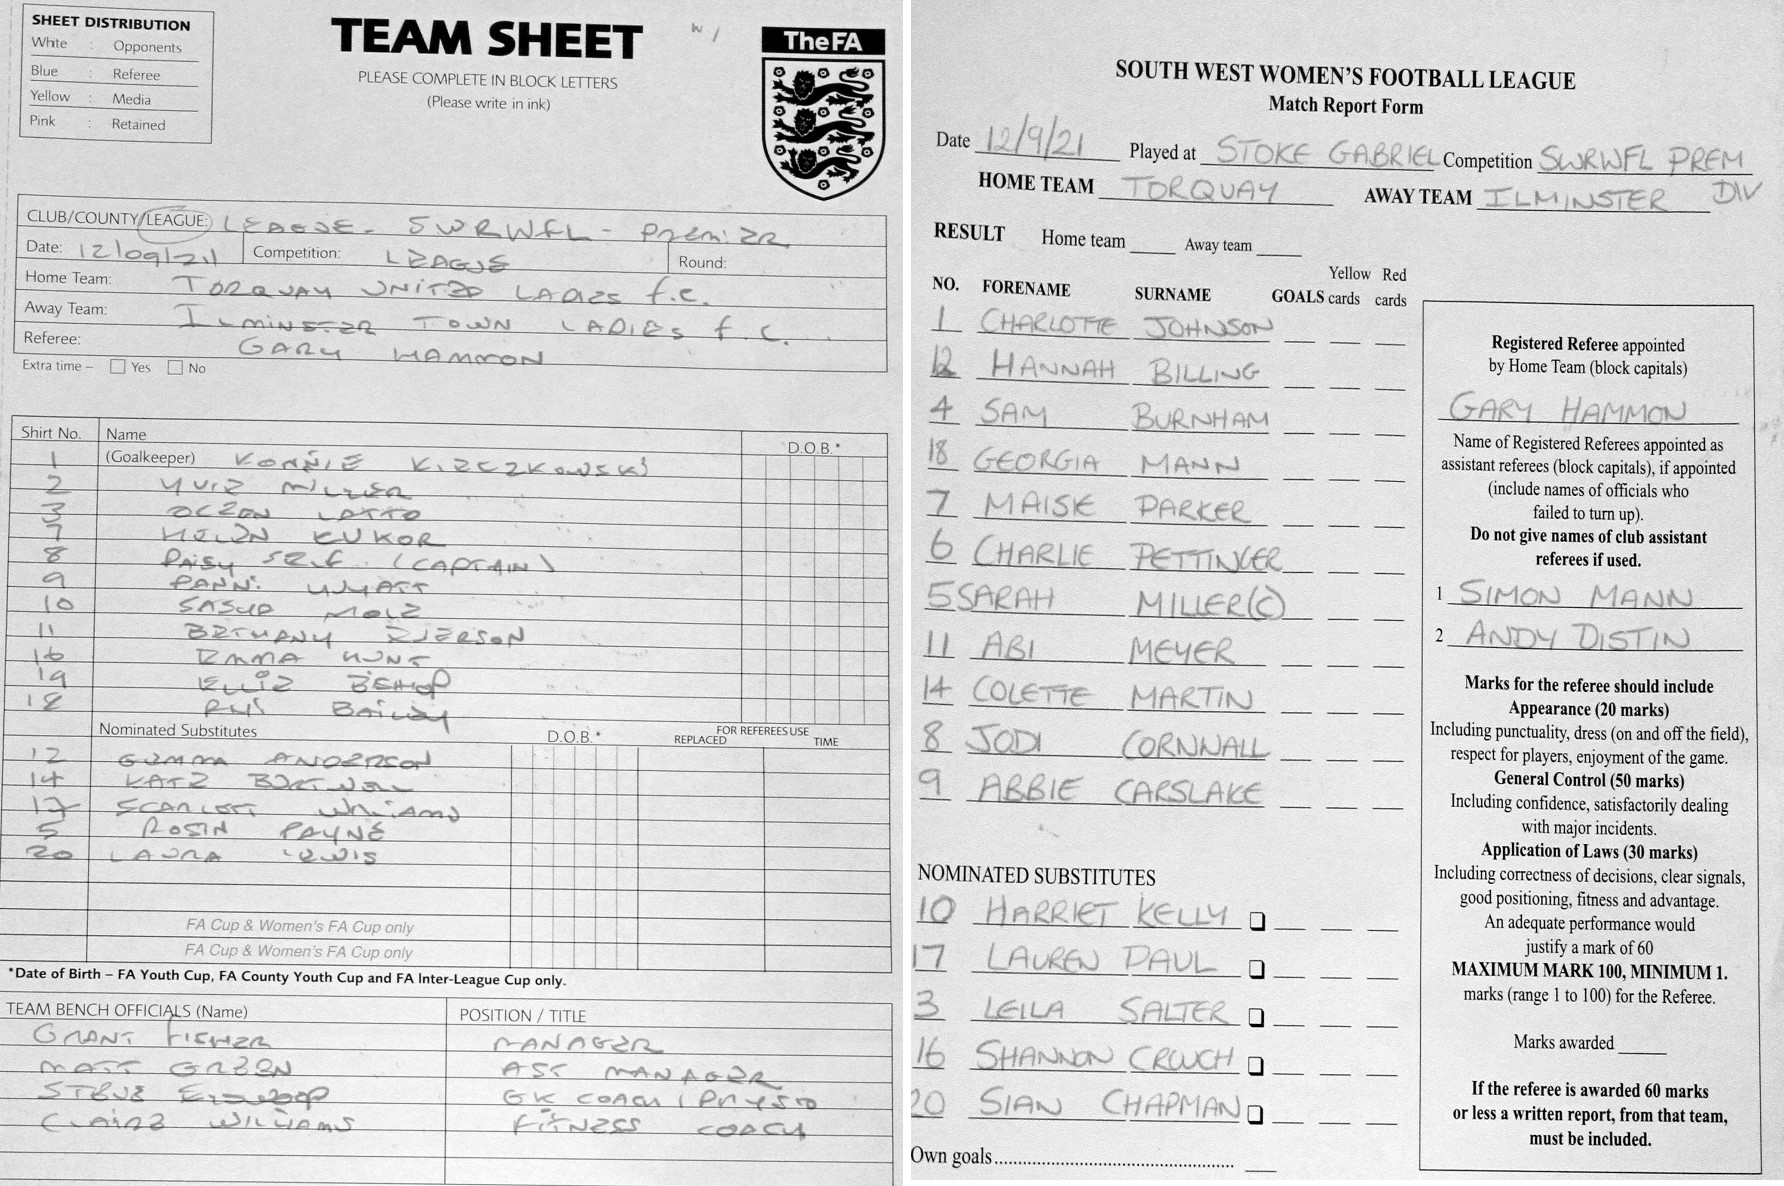 SHEET DISTRIBUTION
White : Opponents
Blue : Referee
Yellow : Media
Pink : Retained
TEAM SHEET
PLEASE COMPLETE IN BLOCK LETTERS
(Please write in ink)
The FA
CLUB/COUNTY/LEAGUE: LEAGUE - SWRWFL - PREMIER
Date: 12/09/21 Competition: LEAGUE Round:
Home Team: TORQUAY UNITED LADIES F.C.
Away Team: ILMINSTER TOWN LADIES F.C.
Referee: GARY HAMMON
Extra time – Yes No
Shirt No. Name D.O.B.*
1 (Goalkeeper) KONNIE
2 MILLER
3 LATTO
7 HELEN KUKOR
8 DAISY SELF (CAPTAIN)
9 WYATT
10
11 BETHANY
16 EMMA HUNT
19 ELLIE BISHOP
18 BAILEY
Nominated Substitutes D.O.B.* FOR REFEREES USE
REPLACED TIME
12 GEMMA ANDERSON
14 KATE
17 SCARLETT WILLIAMS
5 ROSIN PAYNE
20 LAURA LEWIS
FA Cup & Women's FA Cup only
FA Cup & Women's FA Cup only
*Date of Birth – FA Youth Cup, FA County Youth Cup and FA Inter-League Cup only.
TEAM BENCH OFFICIALS (Name) POSITION / TITLE
GRANT FISHER MANAGER
MATT GREEN ASST MANAGER
STEVE GK COACH / PHYSIO
CLAIRE WILLIAMS FITNESS COACH
SOUTH WEST WOMEN'S FOOTBALL LEAGUE
Match Report Form
Date 12/9/21 Played at STOKE GABRIEL Competition SWRWFL PREM DIV
HOME TEAM TORQUAY AWAY TEAM ILMINSTER
RESULT Home team Away team
NO. FORENAME SURNAME GOALS Yellow cards Red cards
1 CHARLOTTE JOHNSON
12 HANNAH BILLING
4 SAM BURNHAM
18 GEORGIA MANN
7 MAISIE PARKER
6 CHARLIE PETTINGER
5 SARAH MILLER(C)
11 ABI MEYER
14 COLETTE MARTIN
8 JODI CORNWALL
9 ABBIE CARSLAKE
NOMINATED SUBSTITUTES
10 HARRIET KELLY
17 LAUREN PAUL
3 LEILA SALTER
16 SHANNON CROUCH
20 SIAN CHAPMAN
Own goals
Registered Referee appointed
by Home Team (block capitals)
GARY HAMMON
Name of Registered Referees appointed as
assistant referees (block capitals), if appointed
(include names of officials who
failed to turn up).
Do not give names of club assistant
referees if used.
1 SIMON MANN
2 ANDY DISTIN
Marks for the referee should include
Appearance (20 marks)
Including punctuality, dress (on and off the field),
respect for players, enjoyment of the game.
General Control (50 marks)
Including confidence, satisfactorily dealing
with major incidents.
Application of Laws (30 marks)
Including correctness of decisions, clear signals,
good positioning, fitness and advantage.
An adequate performance would
justify a mark of 60
MAXIMUM MARK 100, MINIMUM 1.
marks (range 1 to 100) for the Referee.
Marks awarded
If the referee is awarded 60 marks
or less a written report, from that team,
must be included.